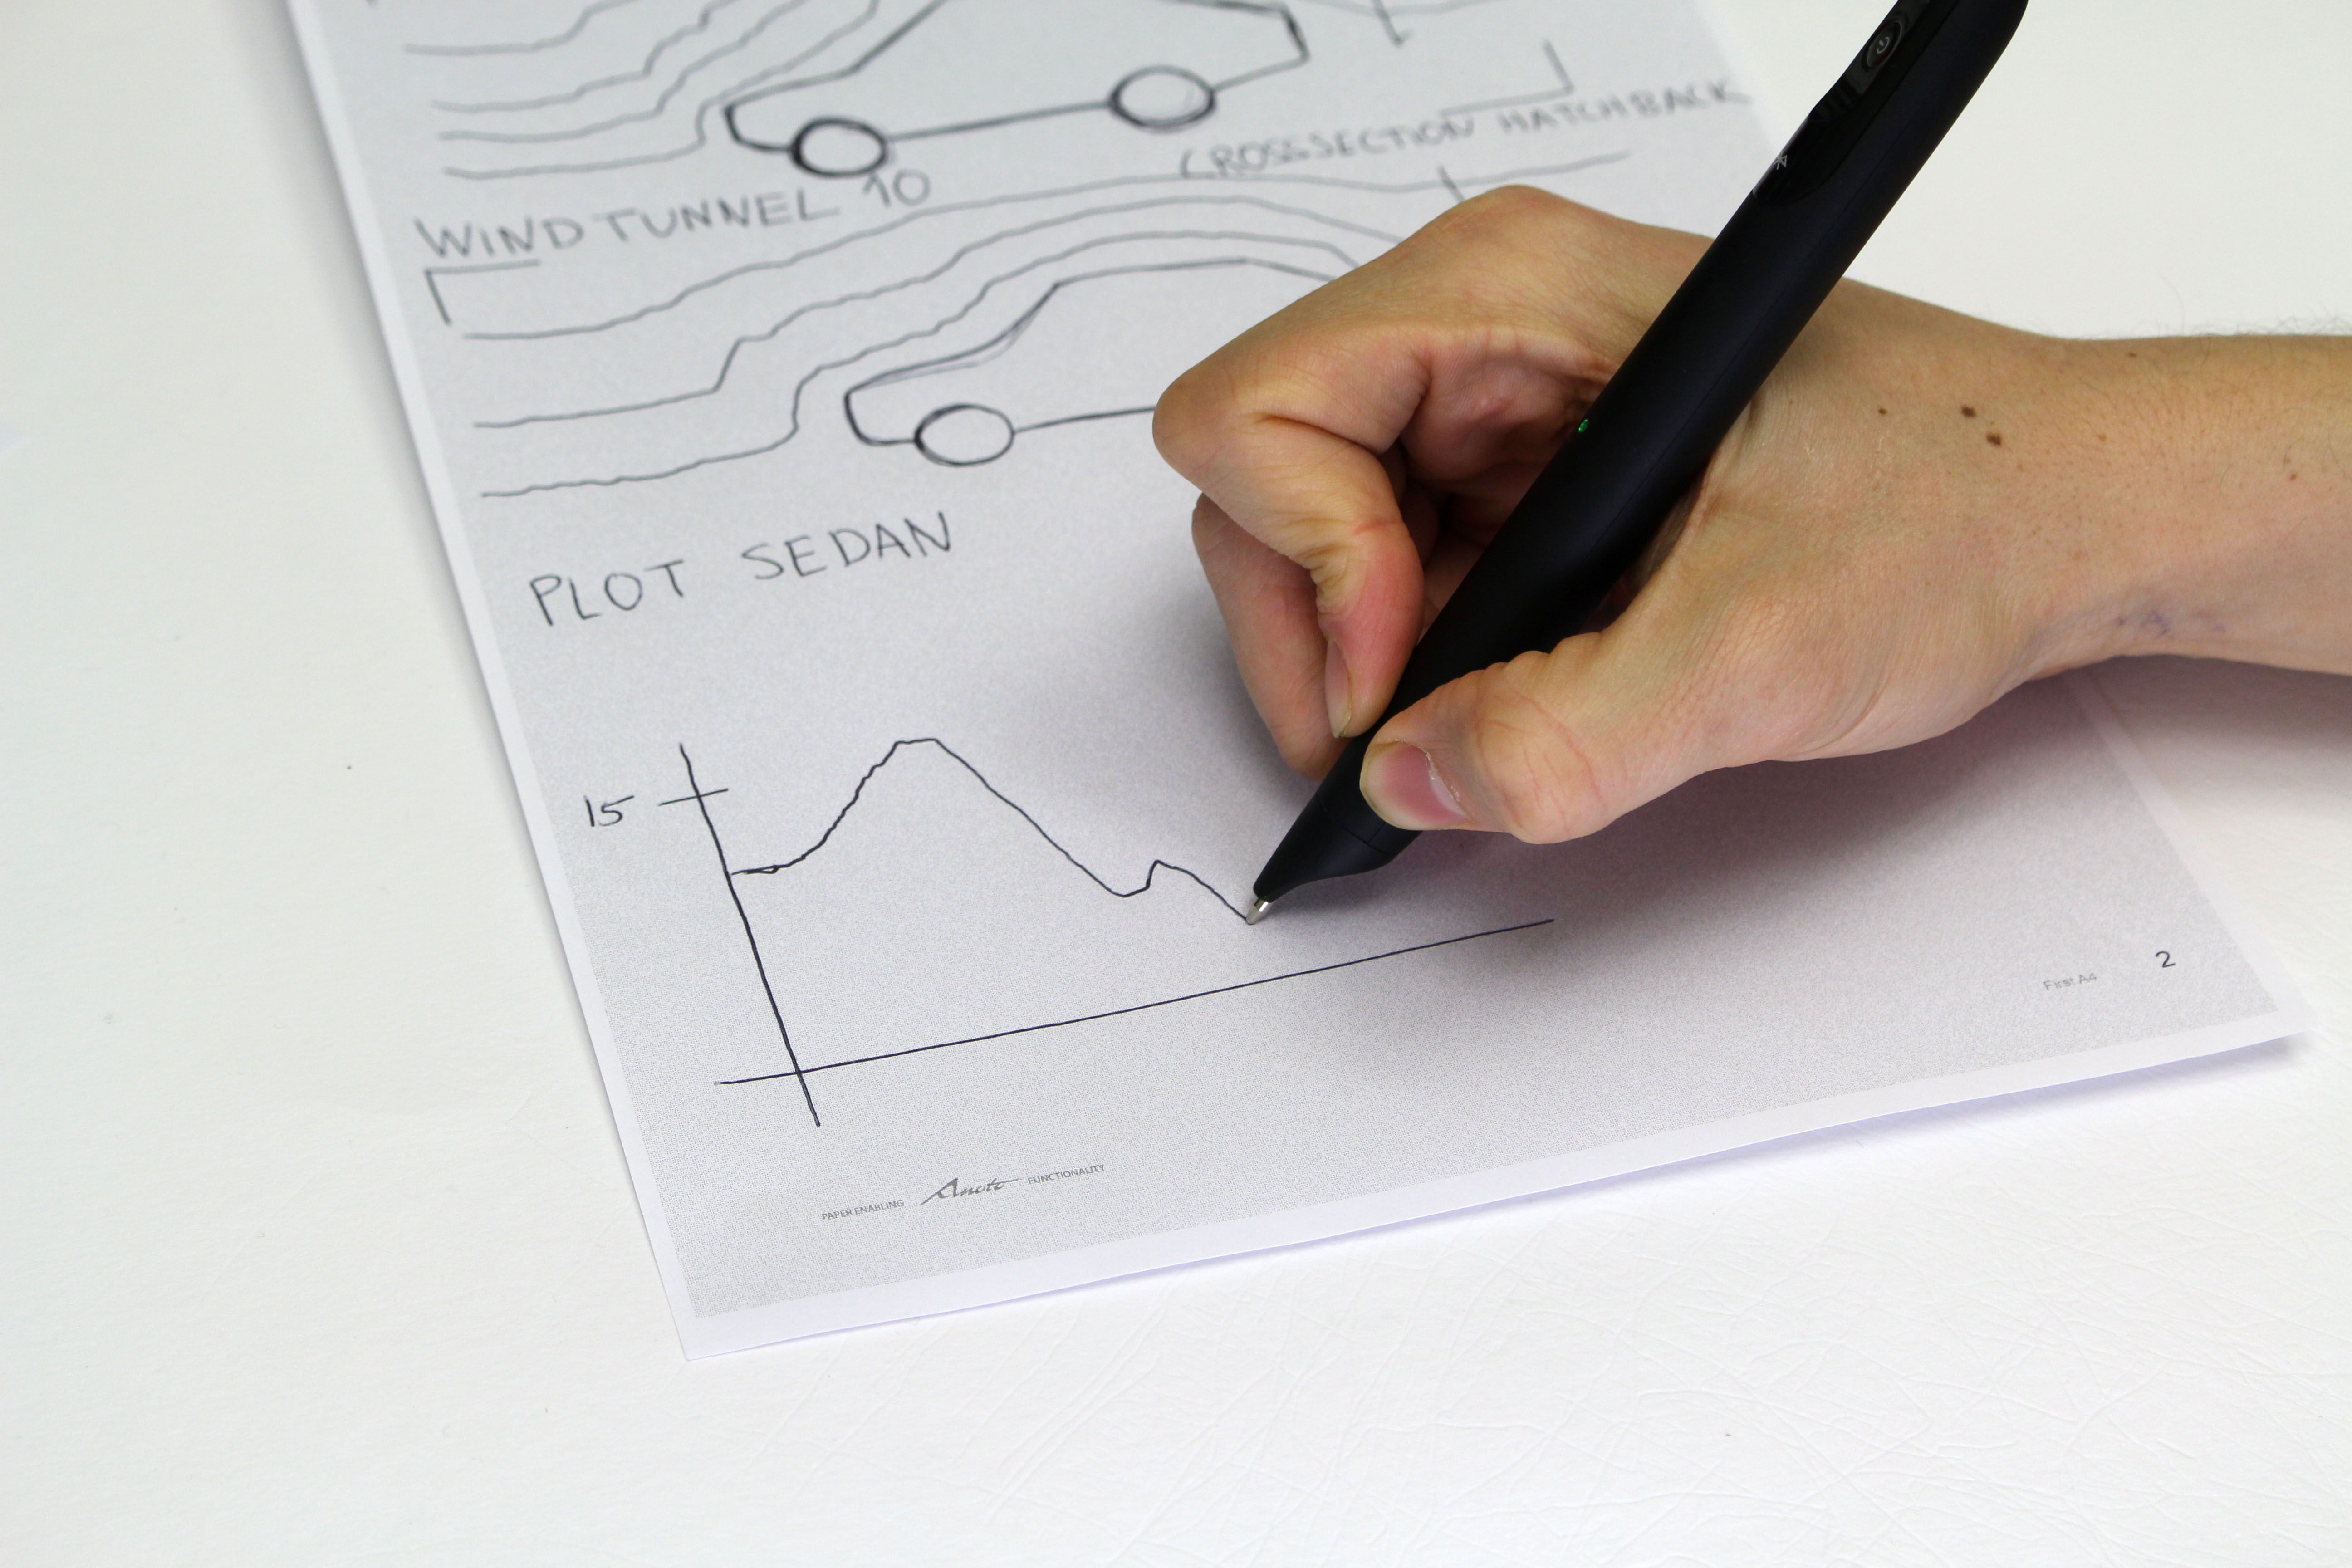 CROSSSECTION HATCHBACK
WIND TUNNEL 10
PLOT SEDAN
15
First A4 2
PAPER ENABLING Anoto FUNCTIONALITY